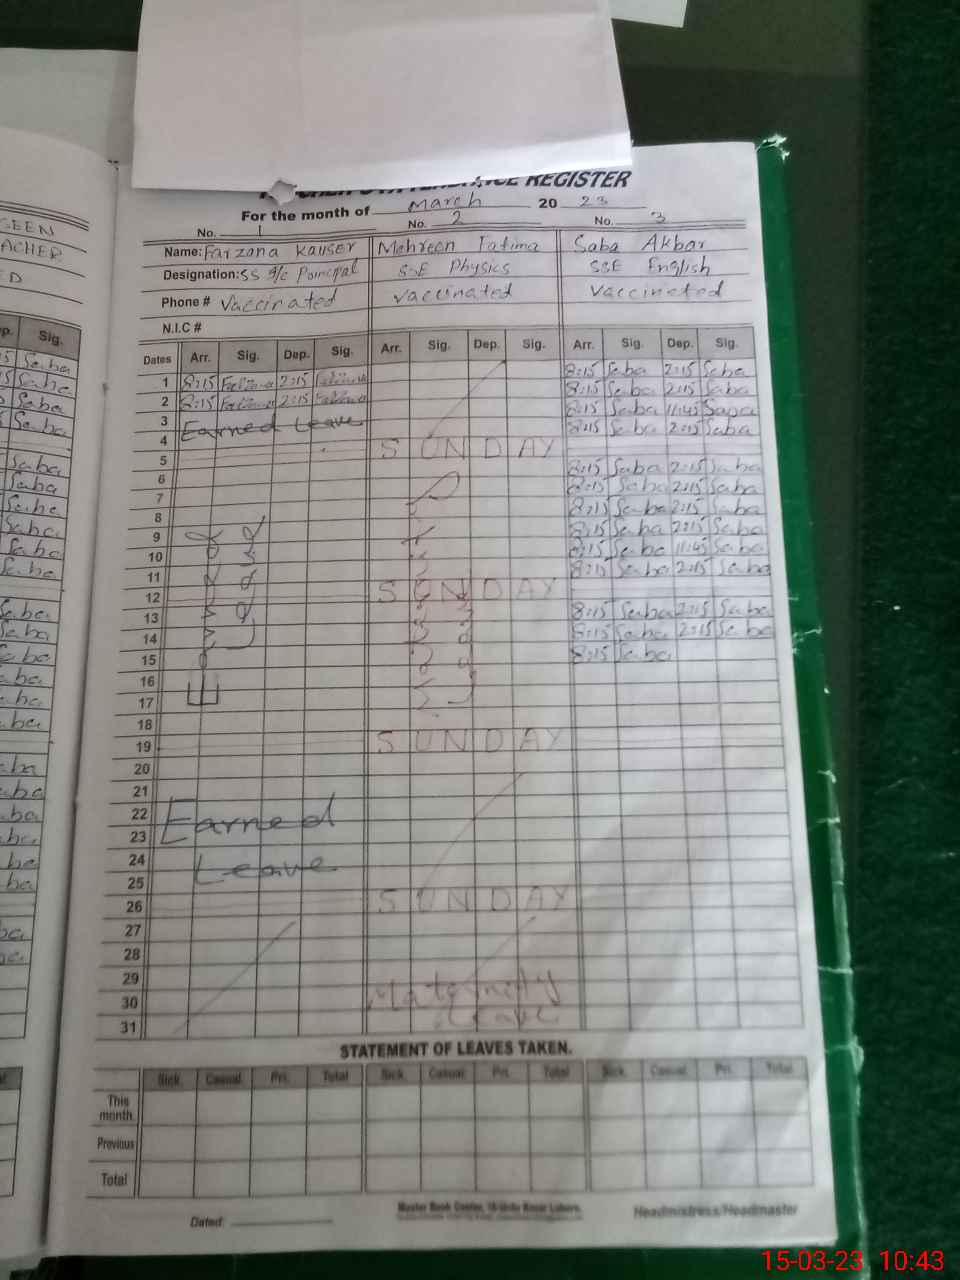 ATTENDANCE REGISTER
For the month of March 20 23
No. 1 No. 2 No. 3
Name: Farzana Kauser Mehreen Fatima Saba Akbar
Designation: SS I/C Principal SSE Physics SSE English
Phone # Vaccinated Vaccinated Vaccinated
N.I.C #
Dates Arr. Sig. Dep. Sig. Arr. Sig. Dep. Sig. Arr. Sig. Dep. Sig.
1 8:15 2:15 8:15 Saba 2:15 Saba
2 8:15 2:15 8:15 Saba 2:15 Saba
3 Earned Leave 8:15 Saba 11:45 Saba
4 8:15 Saba 2:15 Saba
5 SUNDAY
6 8:15 Saba 2:15 Saba
7 8:15 Saba 2:15 Saba
8 8:15 Saba 2:15 Saba
9 8:15 Saba 2:15 Saba
10 8:15 Saba 11:45 Saba
11 8:15 Saba 2:15 Saba
12 SUNDAY
13 8:15 Saba 2:15 Saba
14 8:15 Saba 2:15 Saba
15 8:15 Saba
16
17
Earned Leave
Maternity Leave
18
19 SUNDAY
20
21
22 Earned
23
24 Leave
25
26 SUNDAY
27
28
29
30 Maternity
31 Leave
STATEMENT OF LEAVES TAKEN.
Sick Casual Pri. Total Sick Casual Pri. Total Sick Casual Pri. Total
This month
Previous
Total
Master Book Center, 16-Urdu Bazar Lahore.
Dated: Headmistress/Headmaster
15-03-23 10:43